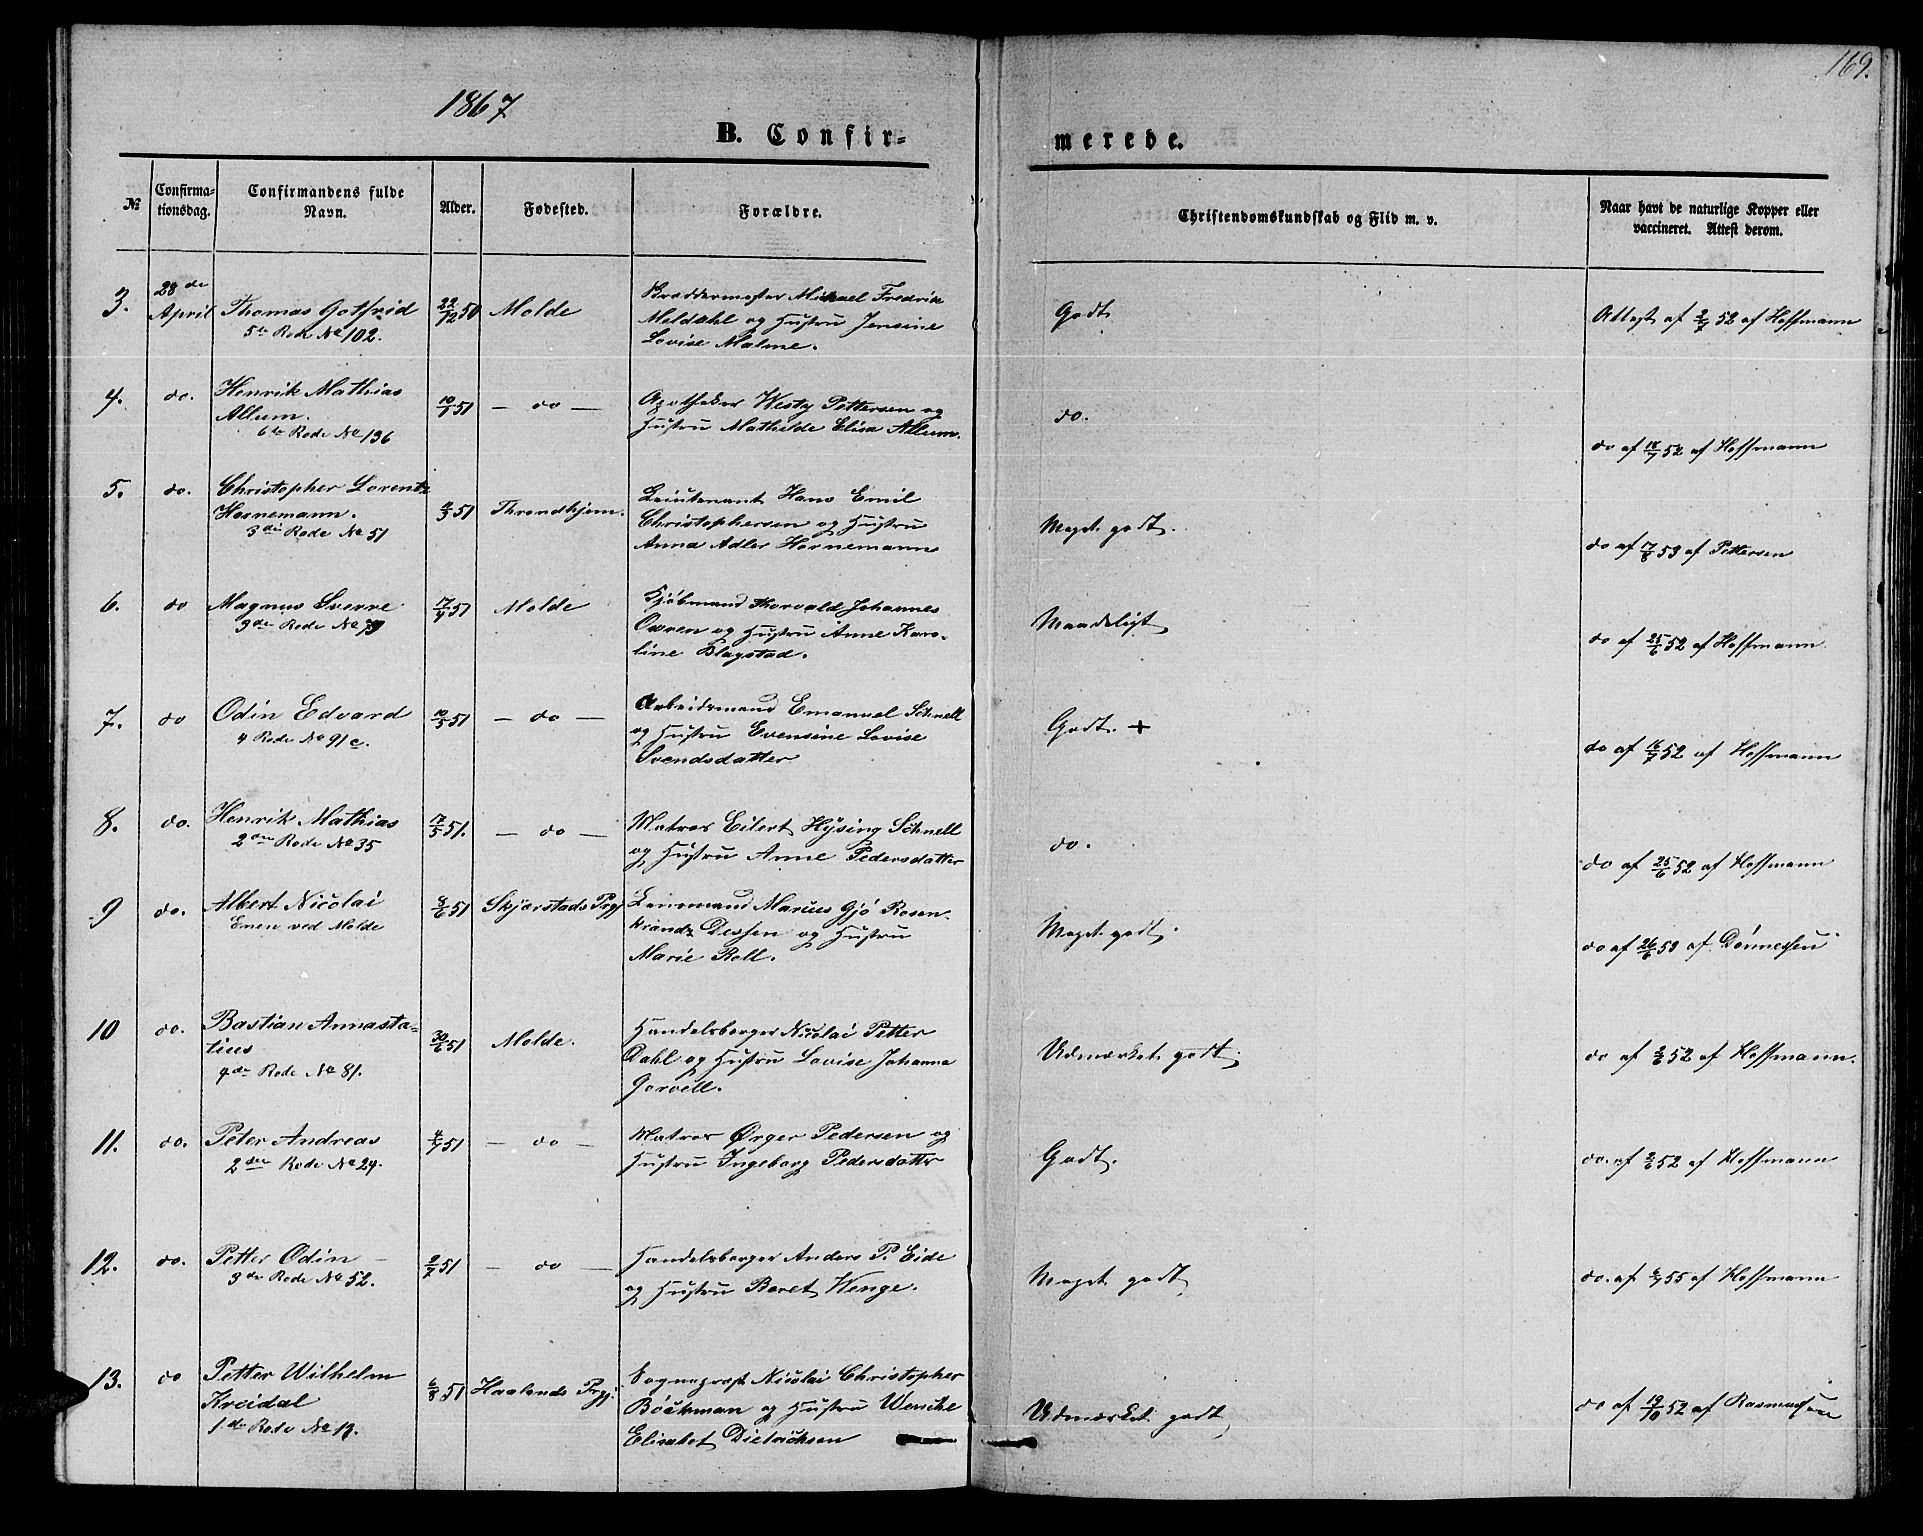 169.
1867
B. Confir-
merede.
№
Confirma-
tionsdag.
Confirmandens fulde
Navn.
Alder.
Fødested.
Forældre.
Christendomskundskab og Flid m. v.
Naar havt de naturlige Kopper eller
vaccineret. Attest derom.
3.
28de
April
Thomas Gotfrid
5te Rode No 102.
22/12 50
Molde
Mickael Fredrik
Moldahl og Hustru Jensine
Lovise Malme.
Godt
Attest af 2/7 52 af Hoffmann
4.
do.
Henrik Mathias
Allum.
6te Rode No 136
10/1 51
— do —
Apotheker Westy Pettersen og
Hustru Mathilde Elisa Allum.
do.
do af 18/7 52 af Hoffmann
5.
do.
Christopher Lorentz
Hornemann.
3die Rode No 51
51
Throndhjem.
Leiutenant Hans Emil
Christophersen og Hustru
Anna Adler Hornemann
Meget godt.
do af 17/8 53 af Pettersen
6.
do
Magnus Sverre
3die Rode No 79
17/4 51
Molde
Kjöbmand Thorvald Johannes
Owren og Hustru Anne Karo-
line Blagstad.
Maadeligt
do af 25/6 52 af Hoffmann
7.
do
Odin Edvard
4 Rode No 91c.
10/5 51
— do —
Arbeidsmand Emanuel Schnell
og Hustru Evensine Lovise
Svendsdatter
Godt. +
do af 16/7 52 af Hoffmann
8.
do.
Henrik Mathias
2den Rode No 35
17/5 51.
— do —
Matros Eilert Hÿsing Schnell
og Hustru Anne Pedersdatter
do.
do af 25/6 52 af Hoffmann
9
do.
Albert Nicolai
Enen ved Molde
8/6 51
Skjerstads Prgj
Lensmand Marius Gjö Rosen-
krandz Dessen og Hustru
Marie Roll.
Meget godt.
do af 26/6 53 af Dönnessen
10
do.
Bastian Annasta-
tius
4de Rode No 81.
30/6 51
Molde.
Handelsborger Nicolai Petter
Dahl og Hustru Lovise Johanna
Gorvell.
Udmærket godt.
do af 2/6 52 af Hoffmann.
11.
do.
Peter Andreas
2den Rode No 24.
4/7 51
— do —
Matros Ørger Pedersen og
Hustru Ingeborg Pedersdatter
Godt.
do. af 2/6 52 af Hoffmann
12.
do.
Petter Odin
3die Rode No 52.
9/7 51
— do —
Handelsborger Anders P. Eide
og Hustru Beret Wenge.
Meget godt
do. af 6/7 55 af Hoffmann
13.
do
Petter Wilhelm
Kreidal
1ste Rode No 12.
6/8 51
Haalands Prgj.
Sognepræst Nicolai Christopher
Böckman og Hustru Wenche
Elisabet Dietrichsen
Udmærket godt
do af 19/10 52 af Rasmussen